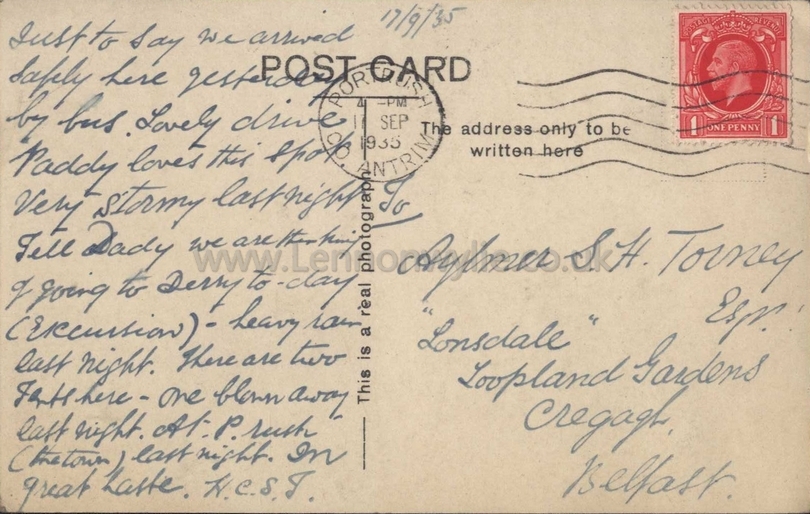 17/9/35
Just to say we arrived
safely here yesterday
by bus. Lovely drive
Paddy loves this spot
Very stormy last night
Tell Dady we are thinking
of going to Derry to-day
(Excursion) - heavy rain
last night. There are two
Tents here - one blown away
last night. At P. rush
(the town) last night. In
great haste. H.C.S.T.
POST CARD
PORTRUSH
4 - PM
17 SEP
1935
CO. ANTRIM
The address only to be
written here
POSTAGE REVENUE
1 ONE PENNY 1
This is a real photograph
To
Aylmer S. H. Torney
Esqr.
"Lonsdale"
Loopland Gardens
Cregagh,
Belfast.
www.Lennonwylie.co.uk